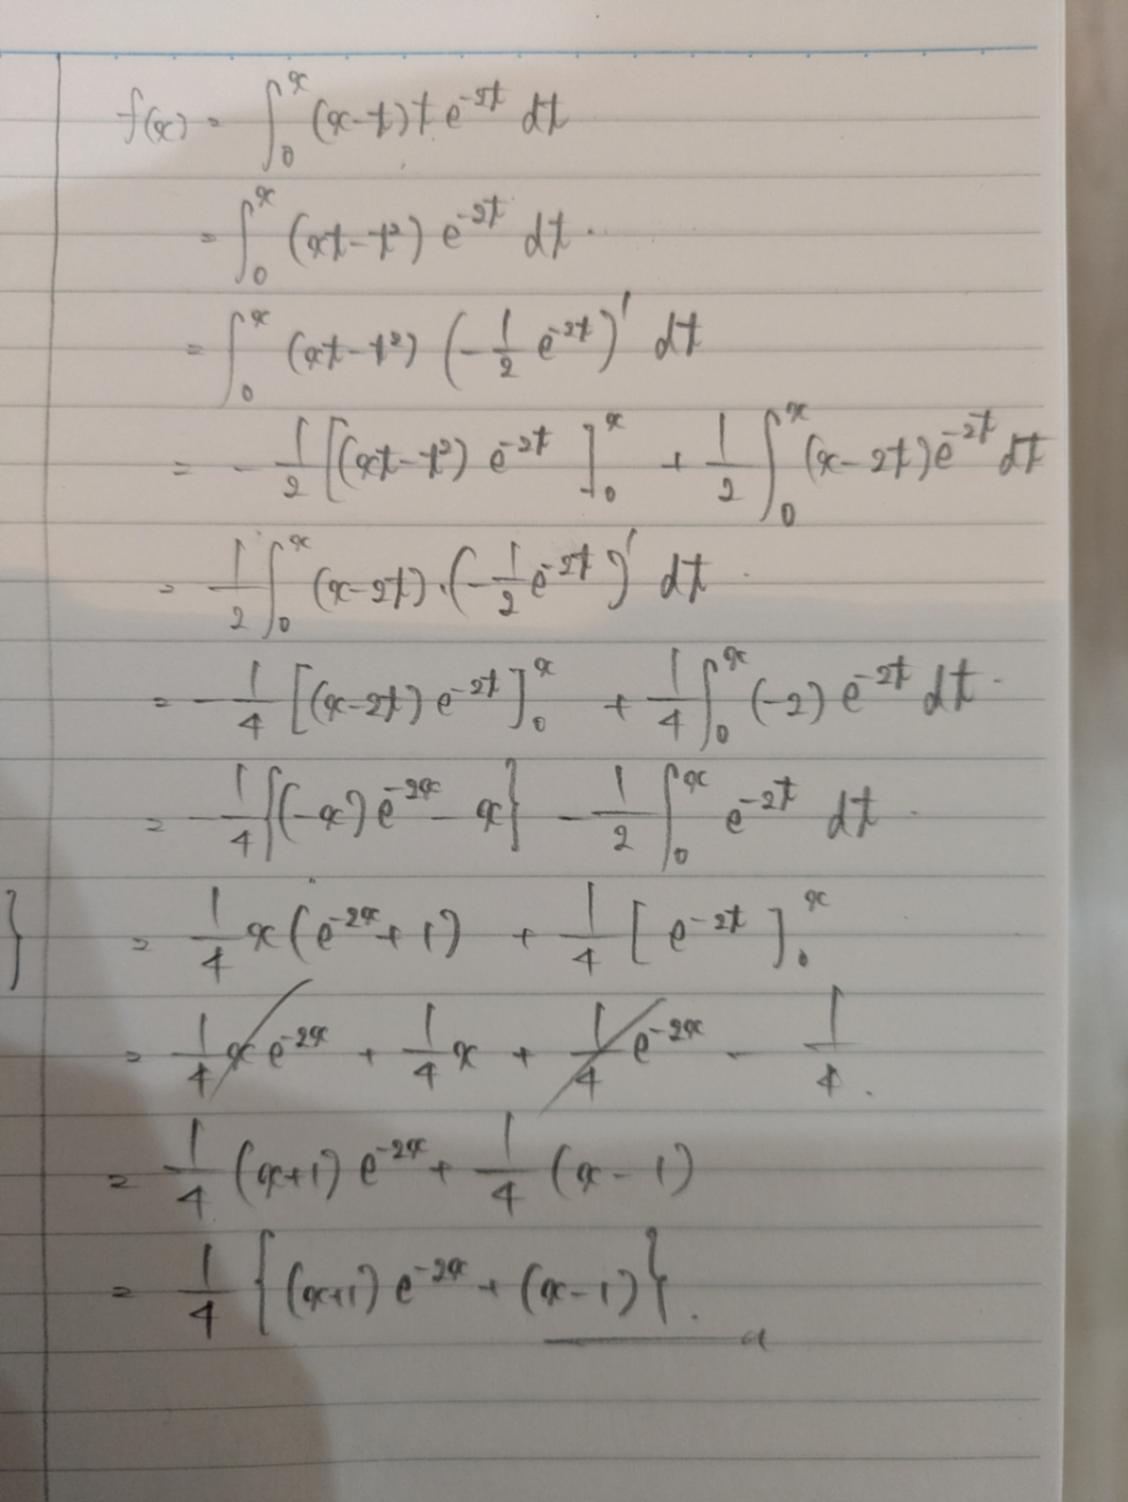 f(x) = ∫₀ˣ (x-t)t e^{-2t} dt
= ∫₀ˣ (xt-t²) e^{-2t} dt.
= ∫₀ˣ (xt-t²) (-1/2 e^{-2t})' dt
= -1/2 [(xt-t²) e^{-2t}]₀ˣ + 1/2 ∫₀ˣ (x-2t)e^{-2t} dt
= 1/2 ∫₀ˣ (x-2t)·(-1/2 e^{-2t})' dt.
= -1/4 [(x-2t) e^{-2t}]₀ˣ + 1/4 ∫₀ˣ (-2) e^{-2t} dt.
= -1/4 {(-x) e^{-2x} - x} - 1/2 ∫₀ˣ e^{-2t} dt.
} = 1/4 x(e^{-2x} + 1) + 1/4 [e^{-2t}]₀ˣ
= 1/4 x e^{-2x} + 1/4 x + 1/4 e^{-2x} - 1/4.
= 1/4 (x+1) e^{-2x} + 1/4 (x-1)
= 1/4 {(x+1) e^{-2x} + (x-1)}.